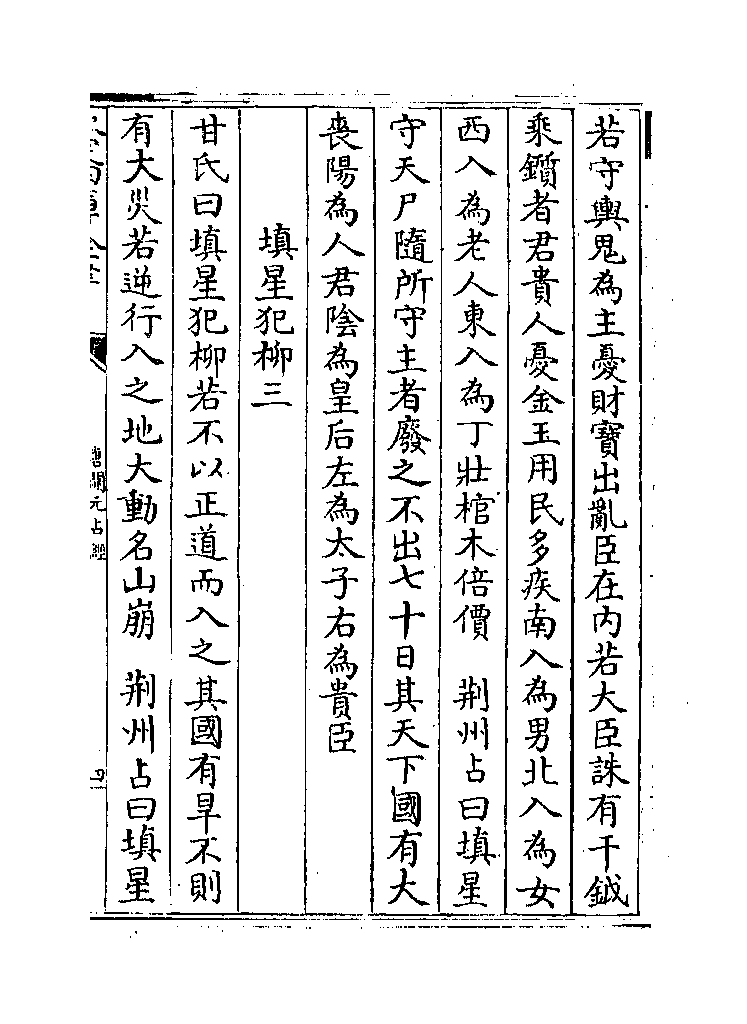 若守輿鬼為主憂財寶出亂臣在内若大臣誅有干鉞
乘鑕者君貴人憂金玉用民多疾南入為男北入為女
西入為老人東入為丁壯棺木倍價　荆州占曰填星
守天尸隨所守主者廢之不出七十日其天下國有大
喪陽為人君陰為皇后左為太子右為貴臣
填星犯柳三
甘氏曰填星犯柳若不以正道而入之其國有旱不則
有大災若逆行入之地大動名山崩　荆州占曰填星
唐開元占經
四